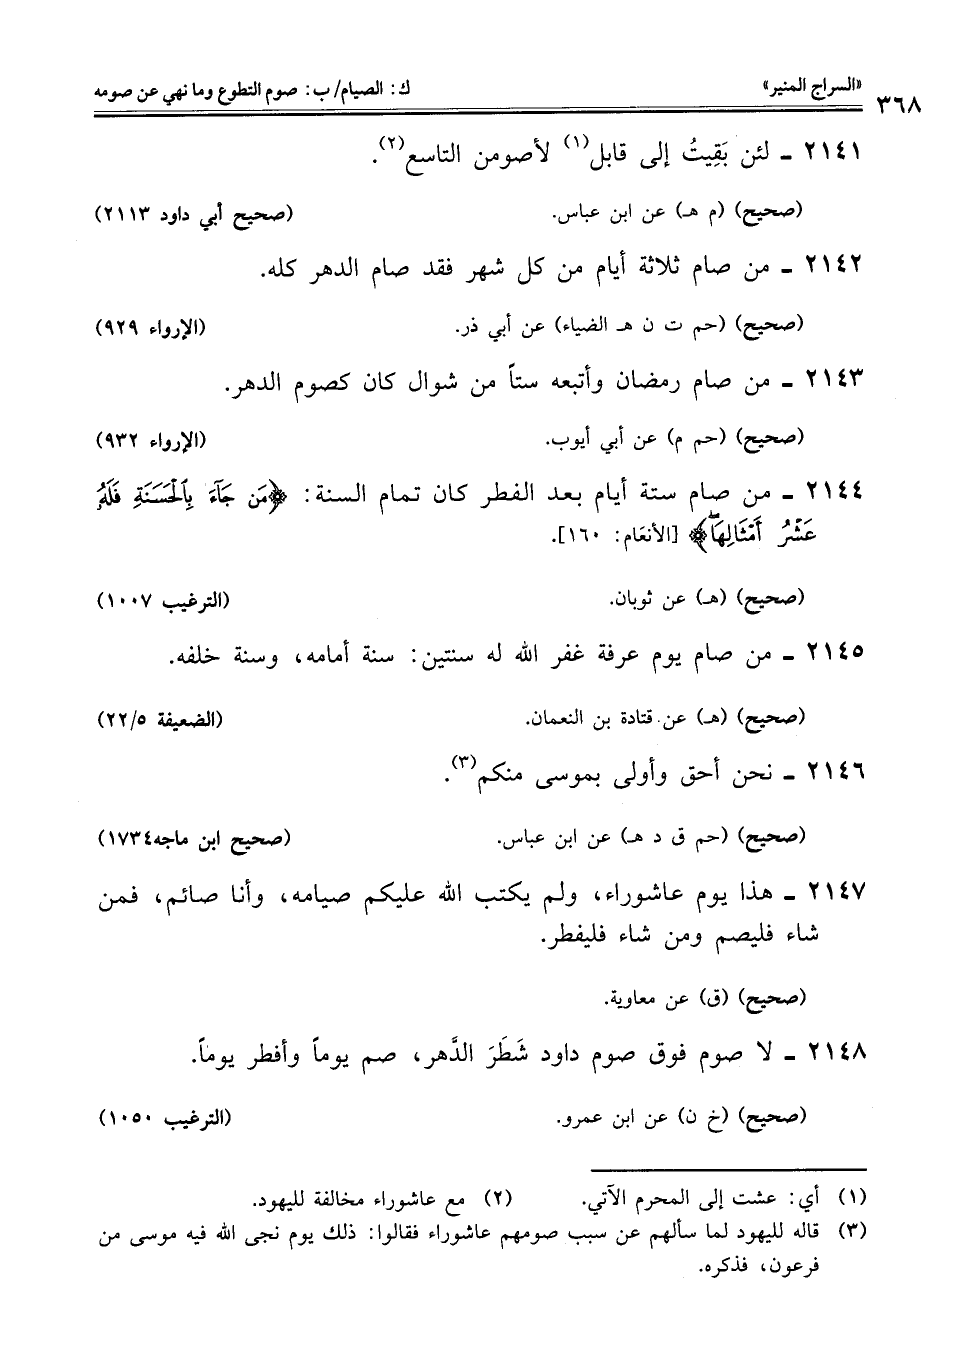 ٣٦٨ «السراج المنير» ك: الصيام/ ب: صوم التطوع وما نهي عن صومه
٢١٤١ ـ لئن بَقِيتُ إلى قابل(١) لأصومن التاسع(٢).
(صحيح) (م هـ) عن ابن عباس. (صحيح أبي داود ٢١١٣)
٢١٤٢ ـ من صام ثلاثة أيام من كل شهر فقد صام الدهر كله.
(صحيح) (حم ت ن هـ الضياء) عن أبي ذر. (الإرواء ٩٢٩)
٢١٤٣ ـ من صام رمضان وأتبعه ستاً من شوال كان كصوم الدهر.
(صحيح) (حم م) عن أبي أيوب. (الإرواء ٩٣٢)
٢١٤٤ ـ من صام ستة أيام بعد الفطر كان تمام السنة: ﴿مَن جَآءَ بِٱلْحَسَنَةِ فَلَهُۥ
عَشْرُ أَمْثَالِهَاۖ﴾ [الأنعَام: ١٦٠].
(صحيح) (هـ) عن ثوبان. (الترغيب ١٠٠٧)
٢١٤٥ ـ من صام يوم عرفة غفر الله له سنتين: سنة أمامه، وسنة خلفه.
(صحيح) (هـ) عن قتادة بن النعمان. (الضعيفة ٢٢/٥)
٢١٤٦ ـ نحن أحق وأولى بموسى منكم(٣).
(صحيح) (حم ق د هـ) عن ابن عباس. (صحيح ابن ماجه١٧٣٤)
٢١٤٧ ـ هذا يوم عاشوراء، ولم يكتب الله عليكم صيامه، وأنا صائم، فمن
شاء فليصم ومن شاء فليفطر.
(صحيح) (ق) عن معاوية.
٢١٤٨ ـ لا صوم فوق صوم داود شَطَرَ الدَّهر، صم يوماً وأفطر يوماً.
(صحيح) (خ ن) عن ابن عمرو. (الترغيب ١٠٥٠)
(١) أي: عشت إلى المحرم الآتي. (٢) مع عاشوراء مخالفة لليهود.
(٣) قاله لليهود لما سألهم عن سبب صومهم عاشوراء فقالوا: ذلك يوم نجى الله فيه موسى من
فرعون، فذكره.